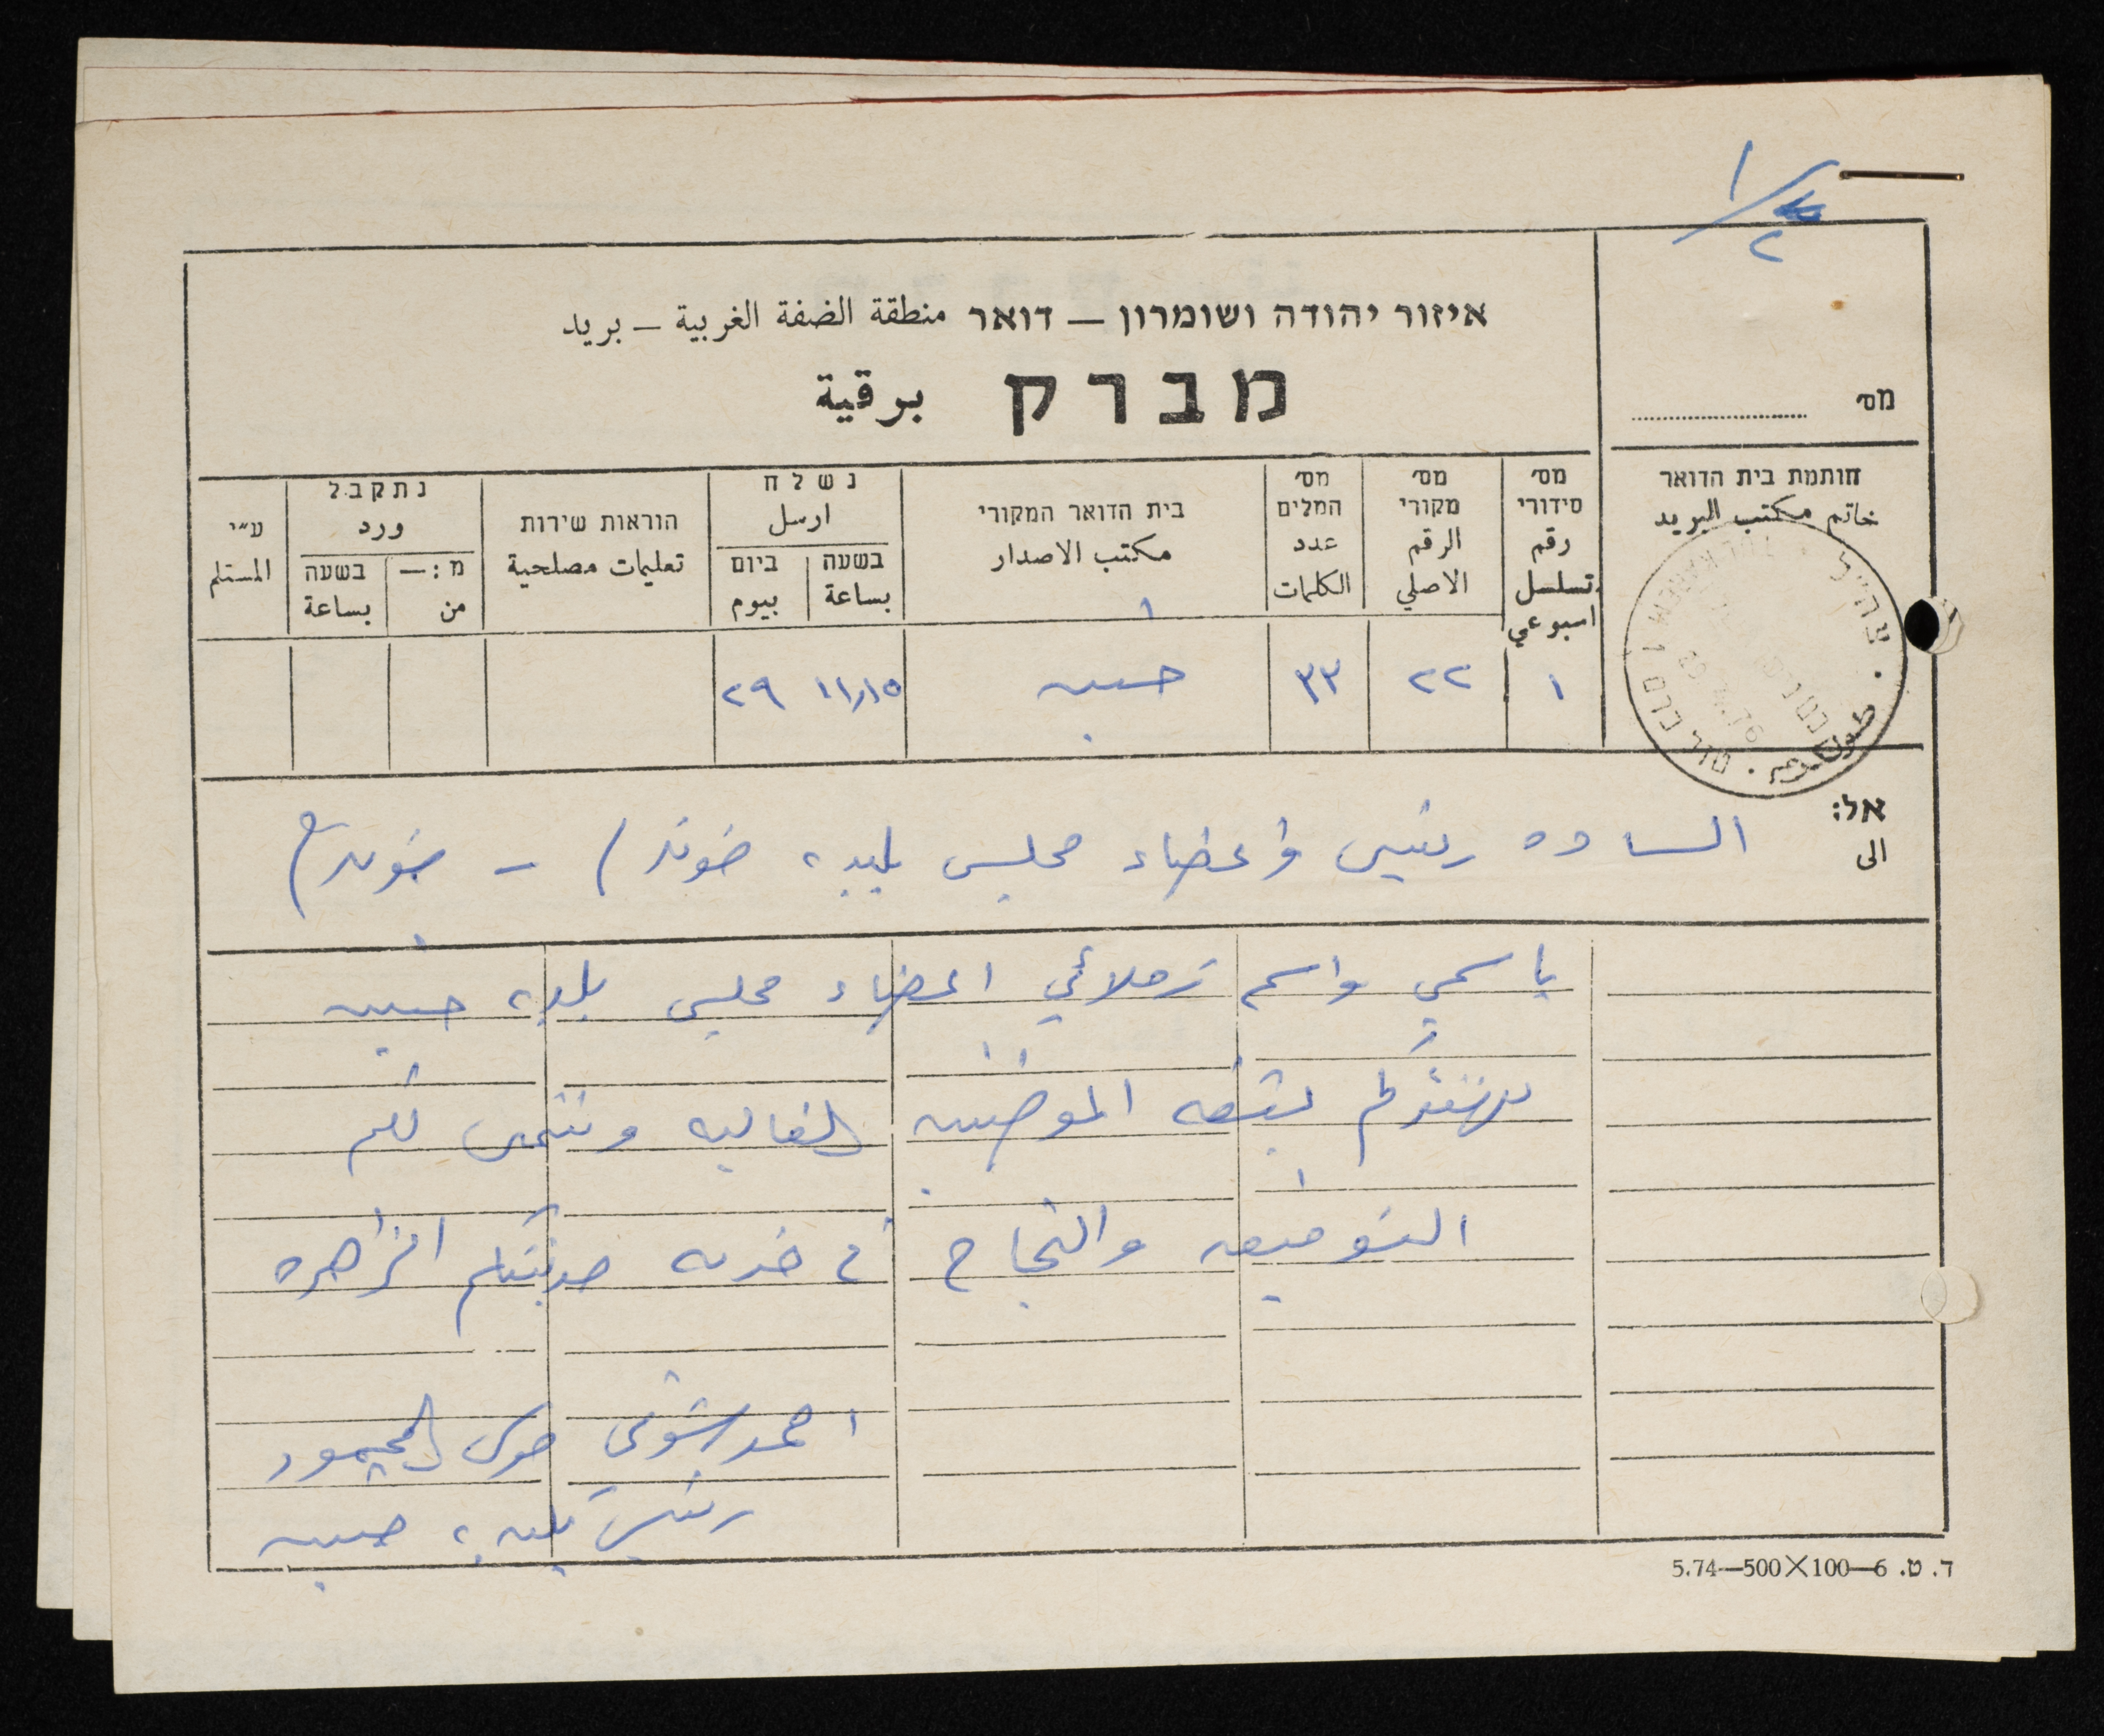 ١/٢
איזור יהודה ושומרון — דואר منطقة الضفة الغربية — بريد
מברק برقية
מס׳
חותמת בית הדואר
خاتم مكتب البريد
מס׳ סידורי رقم تسلسل اسبوعي
מס׳ מקורי الرقم الاصلي
מס׳ המלים عدد الكلمات
בית הדואר המקורי مكتب الاصدار
נשלח ارسل
בשעה بساعة
ביום بيوم
הוראות שירות تعليمات مصلحية
נתקבל ورد
מ:— من
בשעה بساعة
ע״י المستلم
١ ٢٢ ٣٣ جنين ١١٫١٥ ٢٩
צה״ל TULKAREM 1 טול כרם 1 طولكرم
אל: الى
الساده رئيس واعضاء مجلس بلدية
باسمي واسم زملائي اعضاء مجلس بلدية جنين
نهنئكم بثقه المواطنين الغاليه ونتمنى لكم
التوفيق والنجاح في خدمه مدينتكم الزاهره
احمد شوقي المحمود
رئيس بلدية جنين
ד. ט. 6—100×500—5.74